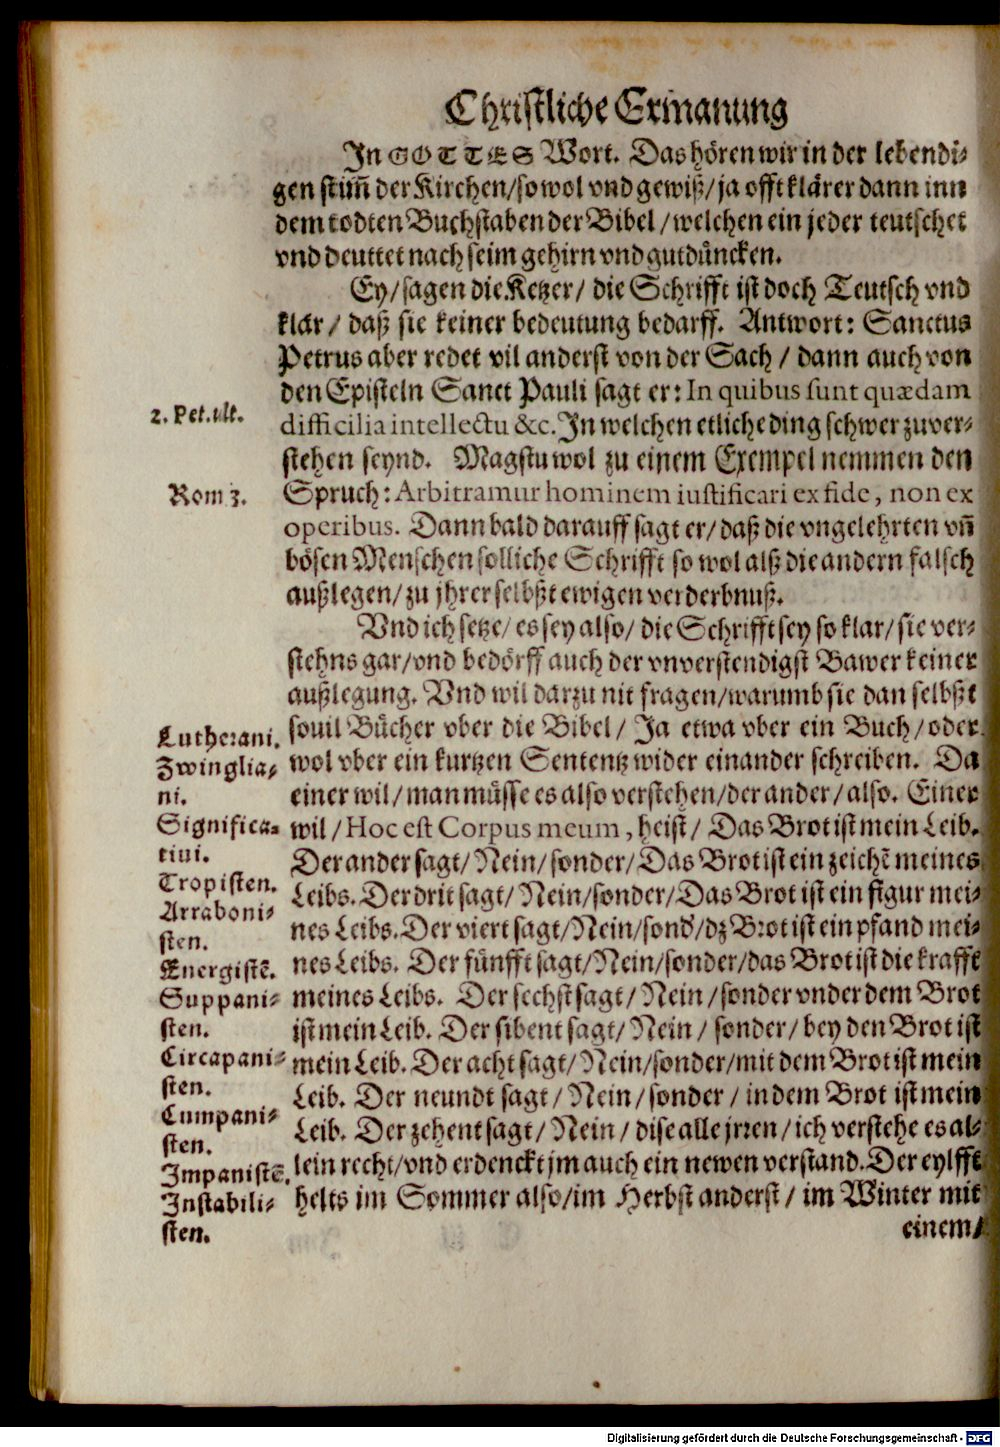 Christliche Ermanung
In GOTTES Wort. Das hören wir in der lebendi-
gen stim̃ der Kirchen/ so wol vnd gewiß/ ja offt klärer dann inn
dem todten Buchstaben der Bibel/ welchen ein jeder teutschet
vnd deuttet nach seim gehirn vnd gutdüncken.
Ey/ sagen die Ketzer/ die Schrifft ist doch Teutsch vnd
klär/ daß sie keiner bedeutung bedarff. Antwort: Sanctus
Petrus aber redet vil anderst von der Sach/ dann auch von
den Episteln Sanct Pauli sagt er: In quibus sunt quædam
2. Pet. vlt.
difficilia intellectu &c. In welchen etliche ding schwer zuver-
stehen seynd. Magstu wol zu einem Exempel nemmen den
Rom 3.
Spruch: Arbitramur hominem iustificari ex fide, non ex
operibus. Dann bald darauff sagt er/ daß die vngelehrten vñ
bösen Menschen solliche Schrifft so wol alß die andern falsch
außlegen/ zu jhrer selbßt ewigen verderbnuß.
Vnd ich setze/ es sey also/ die Schrifft sey so klar/ sie ver-
stehns gar/ vnd bedörff auch der vnverstendigst Bawer keiner
außlegung. Vnd wil darzu nit fragen/ warumb sie dan selbßt
souil Bücher vber die Bibel/ Ja etwa vber ein Buch/ oder
wol vber ein kurtzen Sententz wider einander schreiben. Da
einer wil/ man müsse es also verstehen/ der ander/ also. Einer
wil/ Hoc est Corpus meum, heist/ Das Brot ist mein Leib.
Der ander sagt/ Nein/ sonder/ Das Brot ist ein zeichẽ meines
Leibs. Der drit sagt/ Nein/ sonder/ Das Brot ist ein figur mei-
nes Leibs. Der viert sagt/ Nein/ sond'/ dz Brot ist ein pfand mei-
nes Leibs. Der fünfft sagt/ Nein/ sonder/ das Brot ist die krafft
meines Leibs. Der sechst sagt/ Nein/ sonder vnder dem Brot
ist mein Leib. Der sibent sagt/ Nein/ sonder/ bey den Brot ist
mein Leib. Der acht sagt/ Nein/ sonder/ mit dem Brot ist mein
Leib. Der neundt sagt/ Nein/ sonder/ in dem Brot ist mein
Leib. Der zehent sagt/ Nein/ dise alle jrren/ ich verstehe es al-
lein recht/ vnd erdenckt jm auch ein newen verstand. Der eylfft
helts im Sommer also/ im Herbst anderst/ im Winter mit
einem/
Lutherani.
Zwinglia-
ni.
Significa-
tiui.
Tropisten.
Arraboni-
sten.
Energistẽ.
Suppani-
sten.
Circapani-
sten.
Cumpani-
sten.
Impanistẽ.
Instabili-
sten.
Digitalisierung gefördert durch die Deutsche Forschungsgemeinschaft - DFG